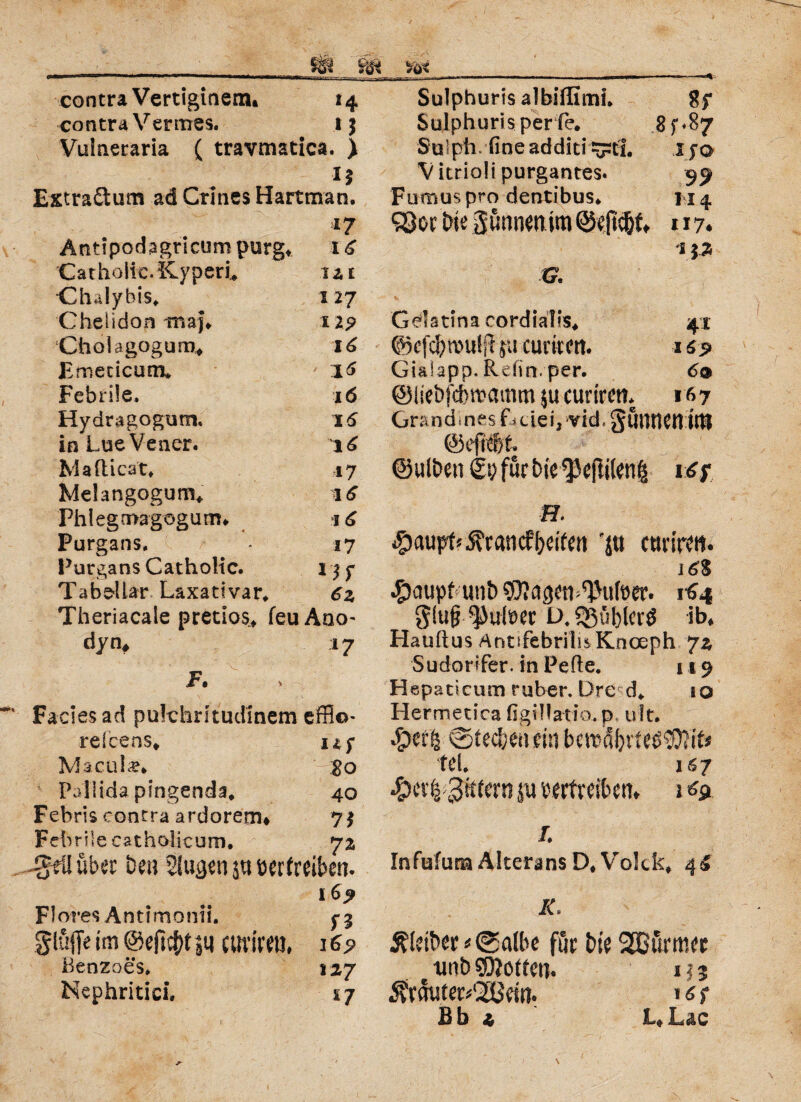 contra Vertiginem. 14
contra Vermes. 13
Vulneraria ( travmatica. )
13
Extractum ad Crines Hartman.
17
Antipodagricum purg. 16
Catholic. Kyperi. 121
Chalybis. 127
Chelidon maj. 129
Cholagogum. 16
Emeticum. 16
Febrile. 16
Hydragogum. 16
in Lue Vener. 16
Masticat. 17
Melangogum. 16
Phlegmagogum. 16
Purgans. 17
Purgans Catholic. 135
Tabellar Laxativar. 62
Theriacale pretios. seu Ano-
dyn. 17
F.
Facies ad pulchritudinem efflo-
rescens. 125
Maculæ. 80
Pallida pingenda. 40
Febris contra ardorem. 73
Febrile catholicum. 72
Fell über den Augen zu vertreiben.
169
Flores Antimonii. 53
Flüsse im Gesicht zu curiren. 169
Benzoës. 127
Nephritici. 17
Sulphuris albissimi. 85
Sulphuris per se. 85.87
Sulph. sine additi ti. 150
Vitrioli purgantes. 99
Fumus pro dentibus. 114
Vor die Finnen im Gesicht. 117.
132
G.
Gelatina cordialis. 41
Geschwulst zu curiren. 169
Gialapp. Resin. per. 60
Gliedschwamm zu curiren. 167
Grandines faciei, vid. Finnen im
Gesicht.
Gulden Ey für die Pestilentz 165
H.
Haupt-Kranckheiten zu curiren.
168
Haupt und Magen-Pulver. 164
Fluß Pulver D. Bühlers ib.
Haustus Antifebrilis Knœph 72
Sudorifer. in Peste. 119
Hepaticum ruber. Dresd. 10
Hermetica sigillatio. p. ult.
Hertz Stechen ein bewährtes Mit-
tel. 167
Hertz-Zittern zu vertreiben. 169
I.
Infusum Alterans D. Volck. 46
K.
Kleider-Salbe für die Würmer
und Motten. 133
Kräuter-Wein. 165
Bb 2 L. Lac